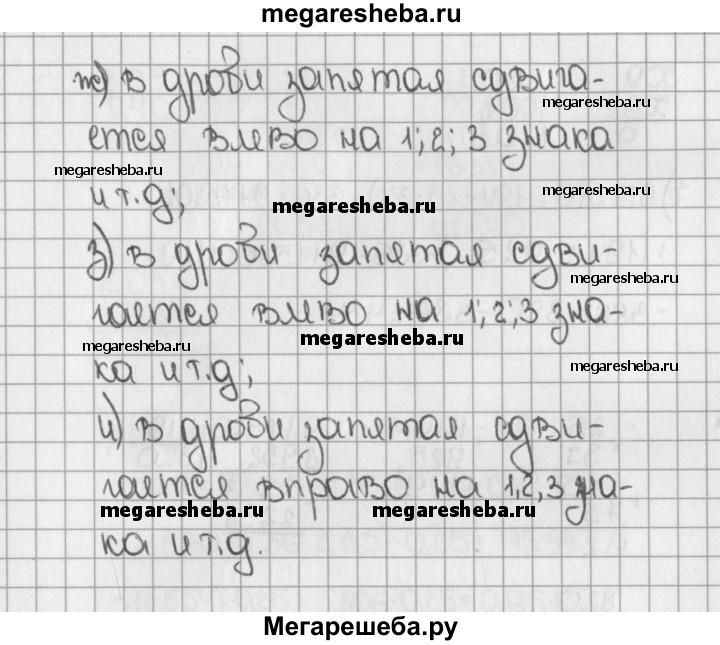 megaresheba.ru
ж) в дроби запятая сдвига-
megaresheba.ru
ется влево на 1; 2; 3 знака
megaresheba.ru
megaresheba.ru
и т.д;
megaresheba.ru
з) в дроби запятая сдви-
megaresheba.ru
гается влево на 1; 2; 3 зна-
megaresheba.ru
megaresheba.ru
ка и т.д;
megaresheba.ru
и) в дроби запятая сдви-
гается вправо на 1, 2, 3 зна-
megaresheba.ru
megaresheba.ru
ка и т.д.
Мегарешеба.ру